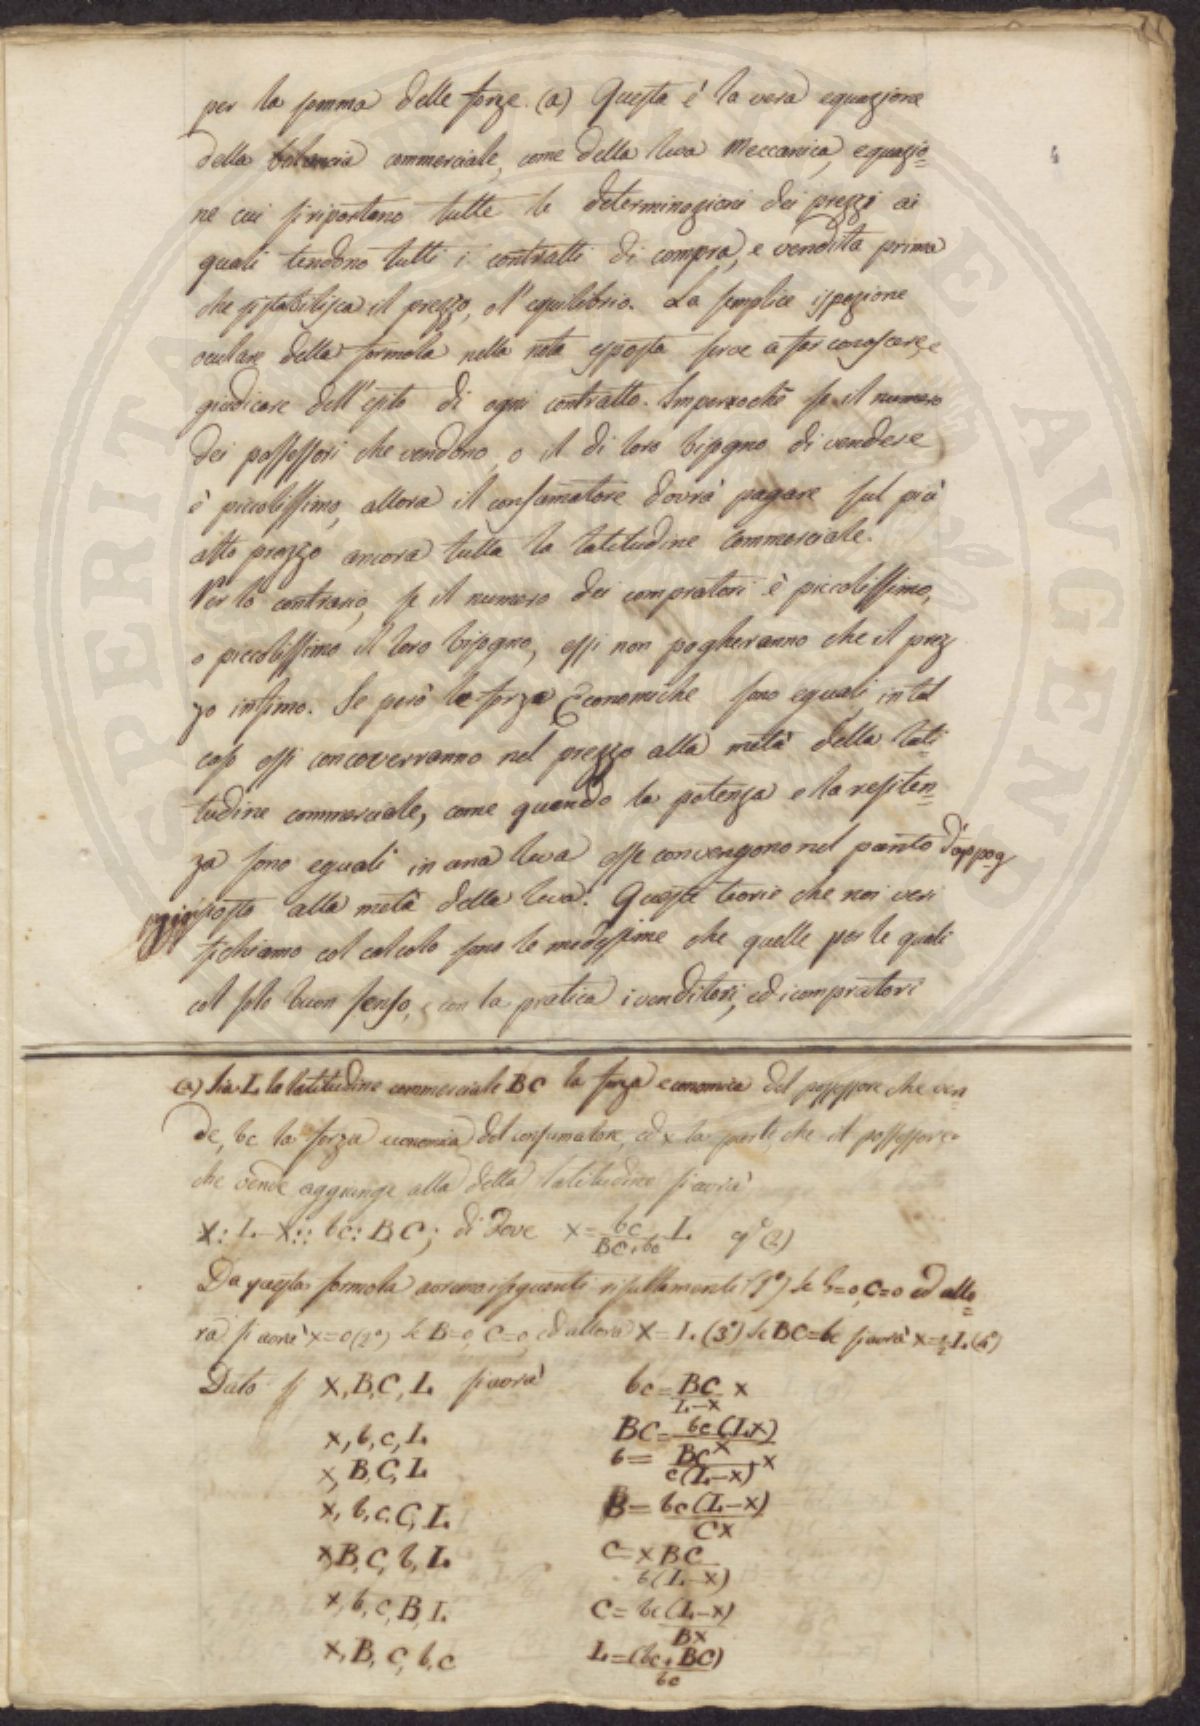 per la somma delle forze. (a) Questa è la vera equazione
della bilancia commerciale, come della leva Meccanica, equazio=
ne cui si riportano tutte le determinazioni dei prezzi ai
quali tendono tutti i contratti di compra, e vendita prima
che si stabilisca il prezzo, o l'equilibrio. La semplice ispezione
oculare della formola nella nota esposta serve a far conoscere, e
giudicare dell'esito di ogni contratto. Imperocchè se il numero
dei possessori che vendono, o il di loro bisogno di vendere
è piccolissimo, allora il consumatore dovrà pagare sul più
alto prezzo ancora tutta la latitudine commerciale.
Per lo contrario, se il numero dei compratori è piccolissimo,
o piccolissimo il loro bisogno, essi non pagheranno che il prez
zo infimo. Se però le forze Economiche sono eguali, in tal
caso essi concoverranno nel prezzo alla metà della lati
tudine commerciale, come quando la potenza e la resisten=
za sono eguali in una leva esse convengono nel punto d'appog
gio posto alla metà della leva. Queste teorie che noi veri
fichiamo col calcolo sono le medesime che quelle per le quali
col solo buon senso, e con la pratica i venditori, ed i compratori
(a) Sia L la latitudine commerciale BC la forza economica del possessore che ven
de, bc la forza economica del consumatore, ed x la parte, che il possessore
che vende aggiunge alla della latitudine si avrà
X: L-X:: bc: BC; di dove X= bc/BC+bc L eq.e (2)
Da questa formola avremo i seguenti risultamenti (1º) Se b=0, C=0 ed allo=
ra si avrà x=0 (2º) Se B=0, C=0, ed allora X=L. (3º) Se BC=bc si avrà x=½L. (4º)
Dato si X, B, C, L si avrà bc= BC/L-X X
x, b, c, L BC= bc(L-x)/X
x, B, C, L b= BC/c(L-X) X
x, b, c, C, L B= bc(L-x)/CX
x, B, C, b, L C=XBC/b(L-X)
x, b, c, B, L C= bc(L-X)/BX
X, B, C, b, c L=(bc+BC)/bc